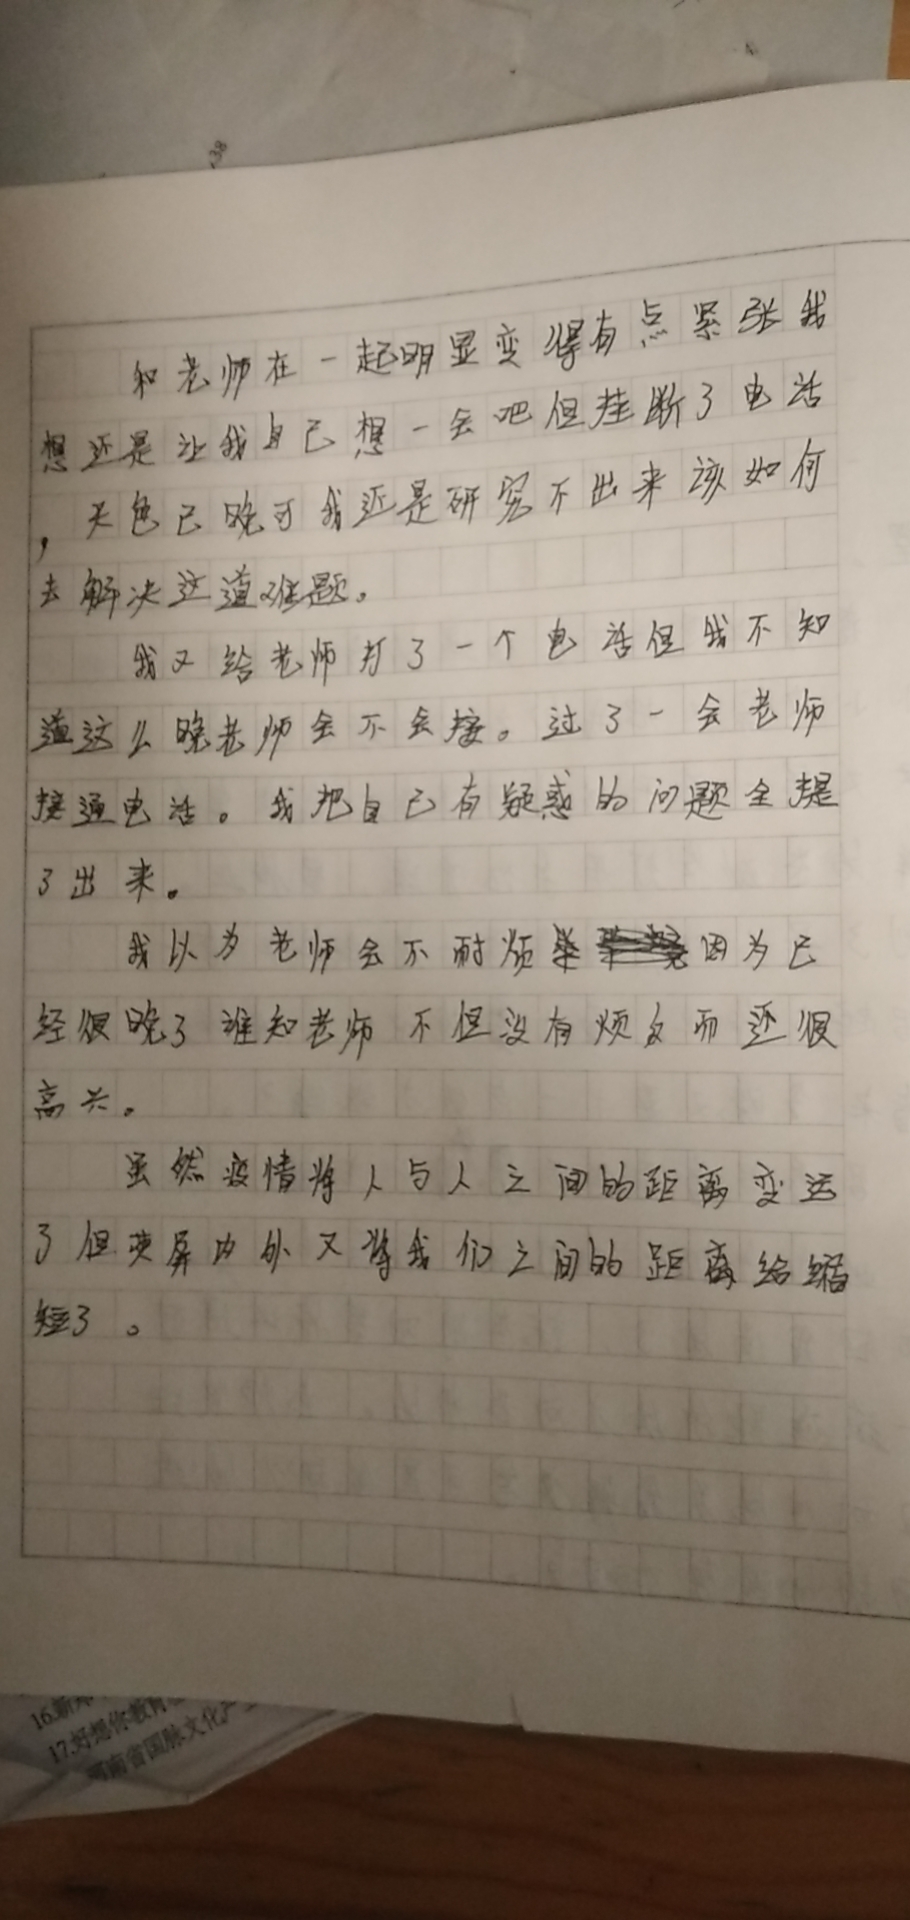 38
和老师在一起明显变得有点紧张我
想还是让我自己想一会吧但挂断了电话
，天色已晚可我还是研究不出来该如何
去解决这道难题。
我又给老师打了一个电话但我不知
道这么晚老师会不会接。过了一会老师
接通电话。我把自己有疑惑的问题全提
了出来。
我以为老师会不耐烦因为已
经很晚了谁知老师不但没有烦反而还很
高兴。
虽然疫情将人与人之间的距离变远
了但荧屏内外又将我们之间的距离给缩
短了。
16.新郑
17.好想你教育
河南省国脉文化产